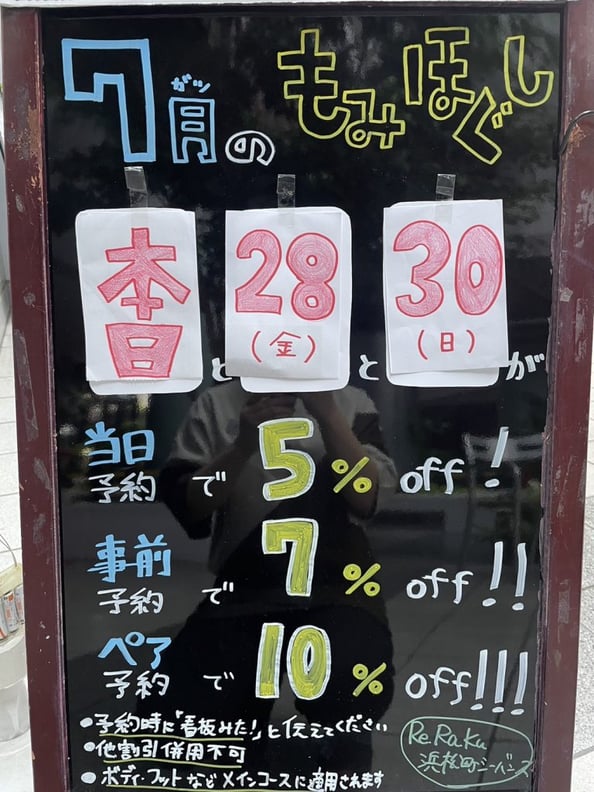 7月のもみほぐし
ガツ
本日と28と30が
(金) (日)
当日
予約で5%off!
事前
予約で7%off!!
ペア
予約で10%off!!!
•予約時に「看板みた!」と伝えてください
•他割引併用不可
•ボディ・フットなどメインコースに適用されます
Re.Ra.Ku
浜松町シーバンス